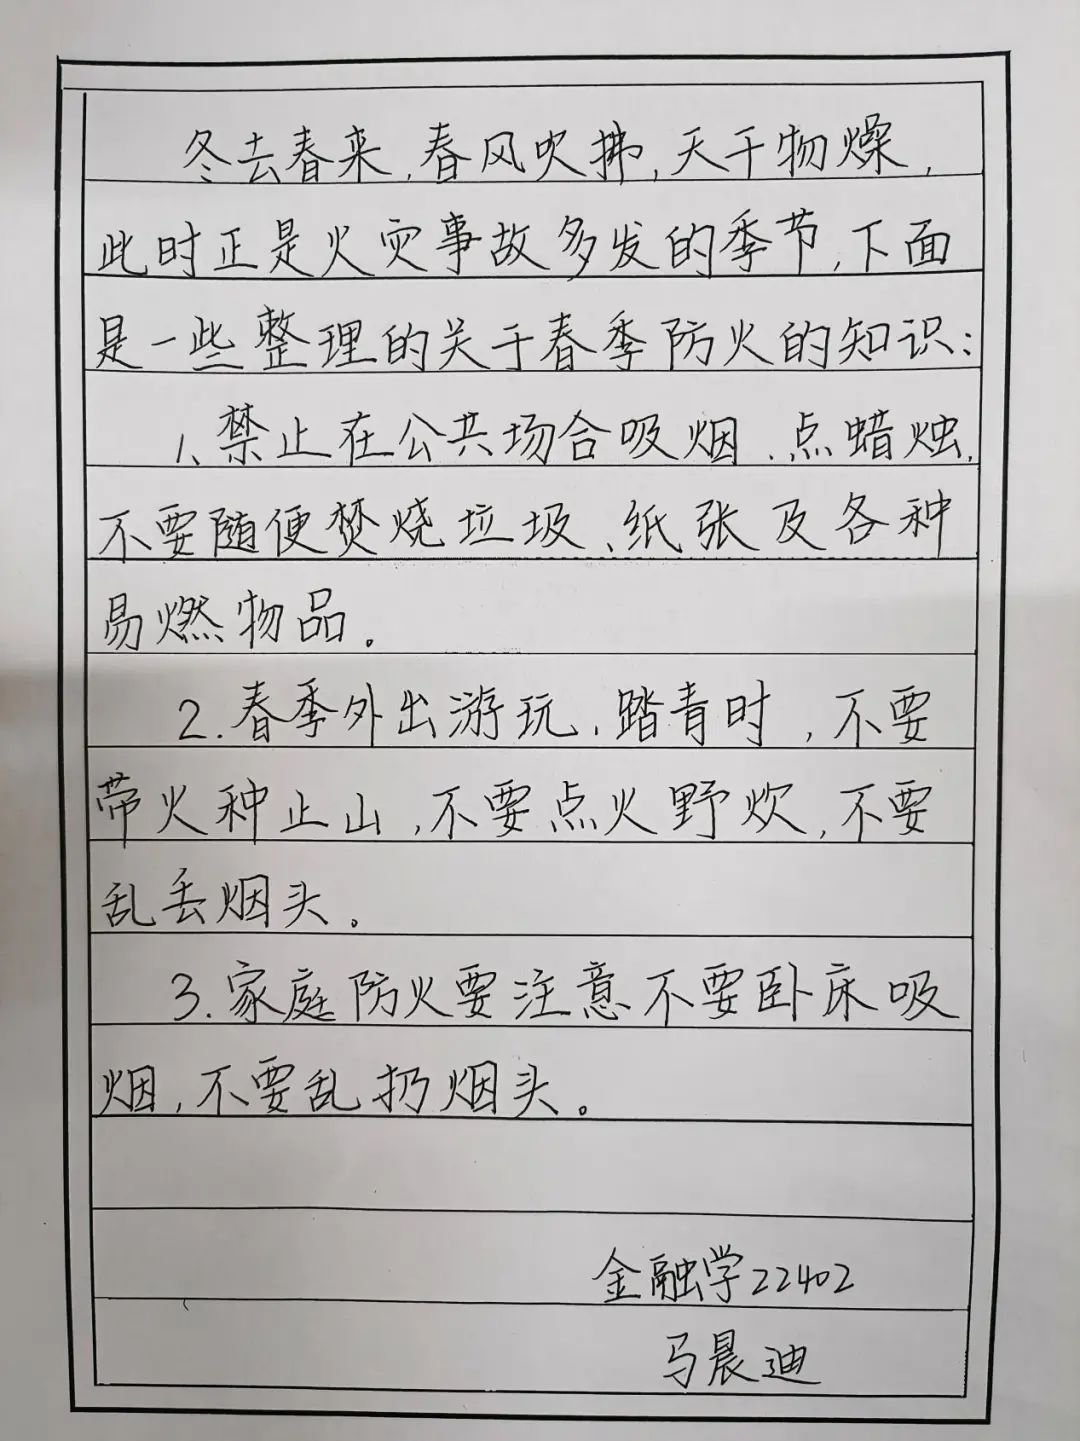 冬去春来,春风吹拂,天干物燥,
此时正是火灾事故多发的季节,下面
是一些整理的关于春季防火的知识:
1、禁止在公共场合吸烟、点蜡烛,
不要随便焚烧垃圾、纸张及各种
易燃物品。
2.春季外出游玩、踏青时,不要
带火种止山,不要点火野炊,不要
乱丢烟头。
3.家庭防火要注意不要卧床吸
烟,不要乱扔烟头。
金融学22402
马晨迪